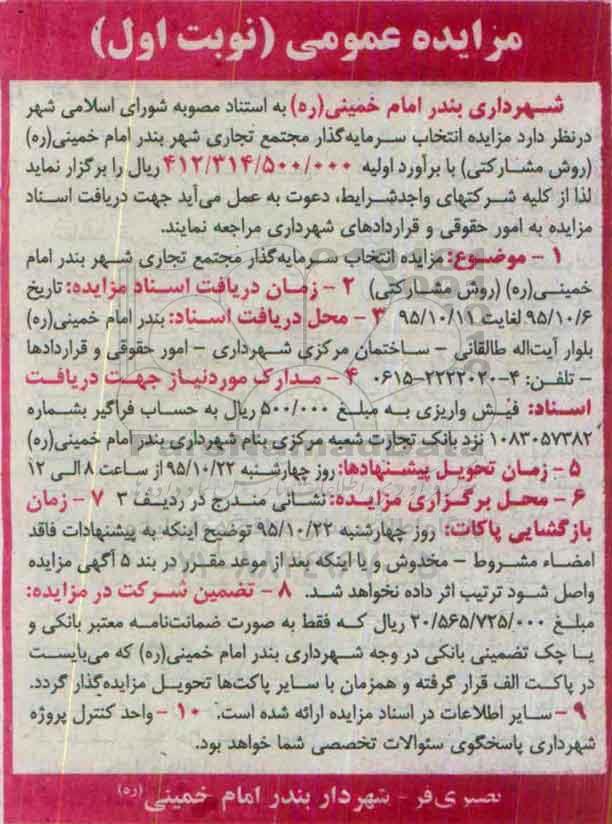 مزایده عمومی (نوبت اول)
شهرداری بندر امام خمینی(ره) به استناد مصوبه شورای اسلامی شهر
درنظر دارد مزایده انتخاب سرمایه‌گذار مجتمع تجاری شهر بندر امام خمینی(ره)
(روش مشارکتی) با برآورد اولیه ۴۱۲/۳۱۴/۵۰۰/۰۰۰ ریال را برگزار نماید
لذا از کلیه شرکتهای واجدشرایط، دعوت به عمل می‌آید جهت دریافت اسناد
مزایده به امور حقوقی و قراردادهای شهرداری مراجعه نمایند.
۱ – موضوع: مزایده انتخاب سرمایه‌گذار مجتمع تجاری شهر بندر امام
خمینی(ره) (روش مشارکتی) ۲ – زمان دریافت اسناد مزایده: تاریخ
۹۵/۱۰/۶ لغایت ۹۵/۱۰/۱۱ ۳ – محل دریافت اسناد: بندر امام خمینی(ره)
بلوار آیت‌اله طالقانی – ساختمان مرکزی شهرداری – امور حقوقی و قراردادها
– تلفن: ۴-۲۲۲۲۰۲۰-۰۶۱۵ ۴ – مدارک موردنیاز جهت دریافت
اسناد: فیش واریزی به مبلغ ۵۰۰/۰۰۰ ریال به حساب فراگیر بشماره
۱۰۸۳۰۵۷۳۸۲ نزد بانک تجارت شعبه مرکزی بنام شهرداری بندر امام خمینی(ره)
۵ – زمان تحویل پیشنهادها: روز چهارشنبه ۹۵/۱۰/۲۲ از ساعت ۸ الی ۱۲
۶ – محل برگزاری مزایده: نشانی مندرج در ردیف ۳ ۷ – زمان
بازگشایی پاکات: روز چهارشنبه ۹۵/۱۰/۲۲ توضیح اینکه به پیشنهادات فاقد
امضاء مشروط – مخدوش و یا اینکه بعد از موعد مقرر در بند ۵ آگهی مزایده
واصل شود ترتیب اثر داده نخواهد شد. ۸ – تضمین شرکت در مزایده:
مبلغ ۲۰/۵۶۵/۷۲۵/۰۰۰ ریال که فقط به صورت ضمانت‌نامه معتبر بانکی و
یا چک تضمینی بانکی در وجه شهرداری بندر امام خمینی(ره) که می‌بایست
در پاکت الف قرار گرفته و همزمان با سایر پاکت‌ها تحویل مزایده‌گذار گردد.
۹ – سایر اطلاعات در اسناد مزایده ارائه شده است. ۱۰ – واحد کنترل پروژه
شهرداری پاسخگوی سئوالات تخصصی شما خواهد بود.
نصیری‌فر - شهردار بندر امام خمینی(ره)